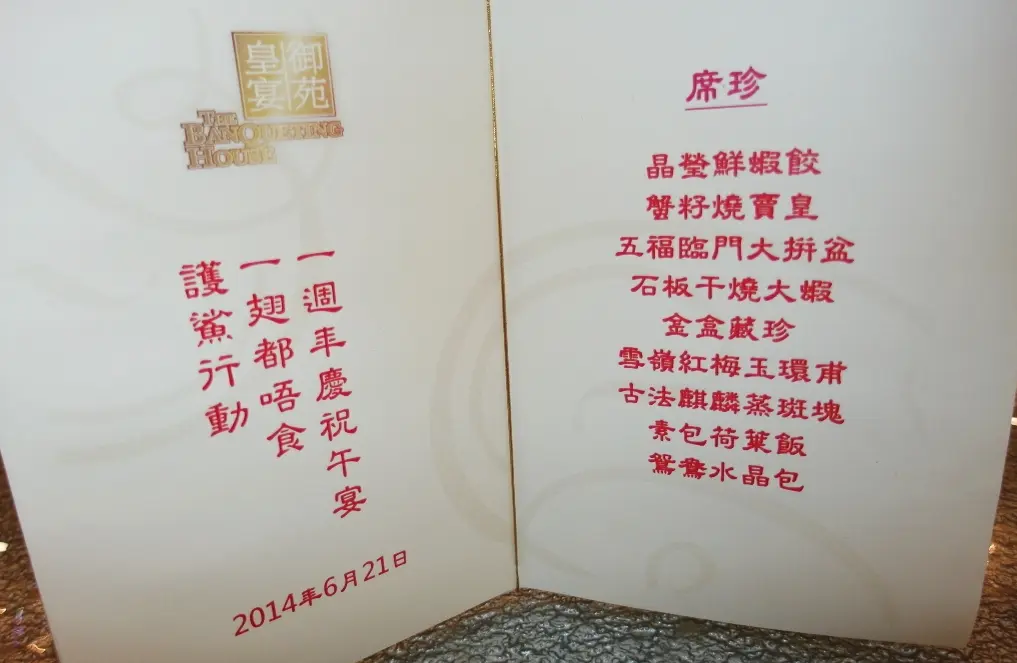 御苑
皇宴
THE
BANQUETING
HOUSE
一週年慶祝午宴
一翅都唔食
護鯊行動
2014年6月21日
席珍
晶瑩鮮蝦餃
蟹籽燒賣皇
五福臨門大拼盆
石板干燒大蝦
金盒藏珍
雪嶺紅梅玉環甫
古法麒麟蒸斑塊
素包荷葉飯
鴛鴦水晶包